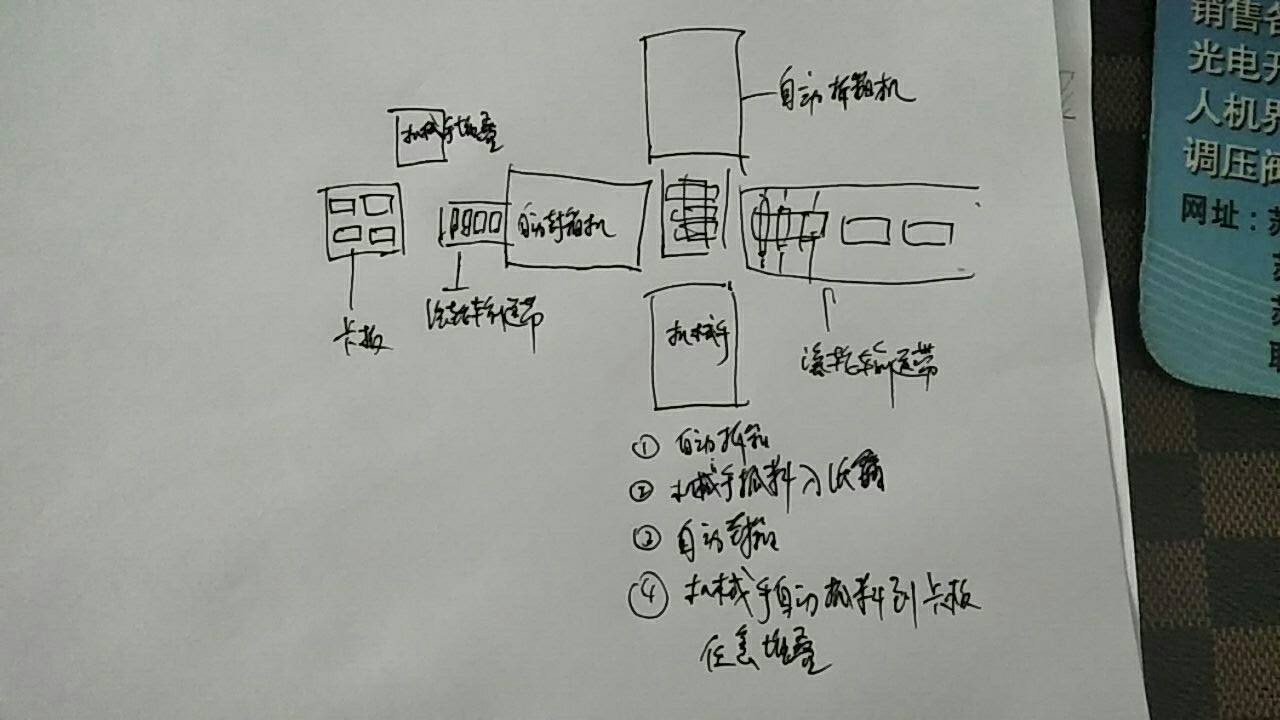 自动拆箱机
机械手堆叠
自动封箱机
卡板
滚轮车输送带
机械手
滚轮车输送带
① 自动拆箱
② 机械手抓料入纸箱
③ 自动封箱
④ 机械手自动抓料到卡板
任意堆叠
销售各
光电开
人机界
调压阀
网址：苏